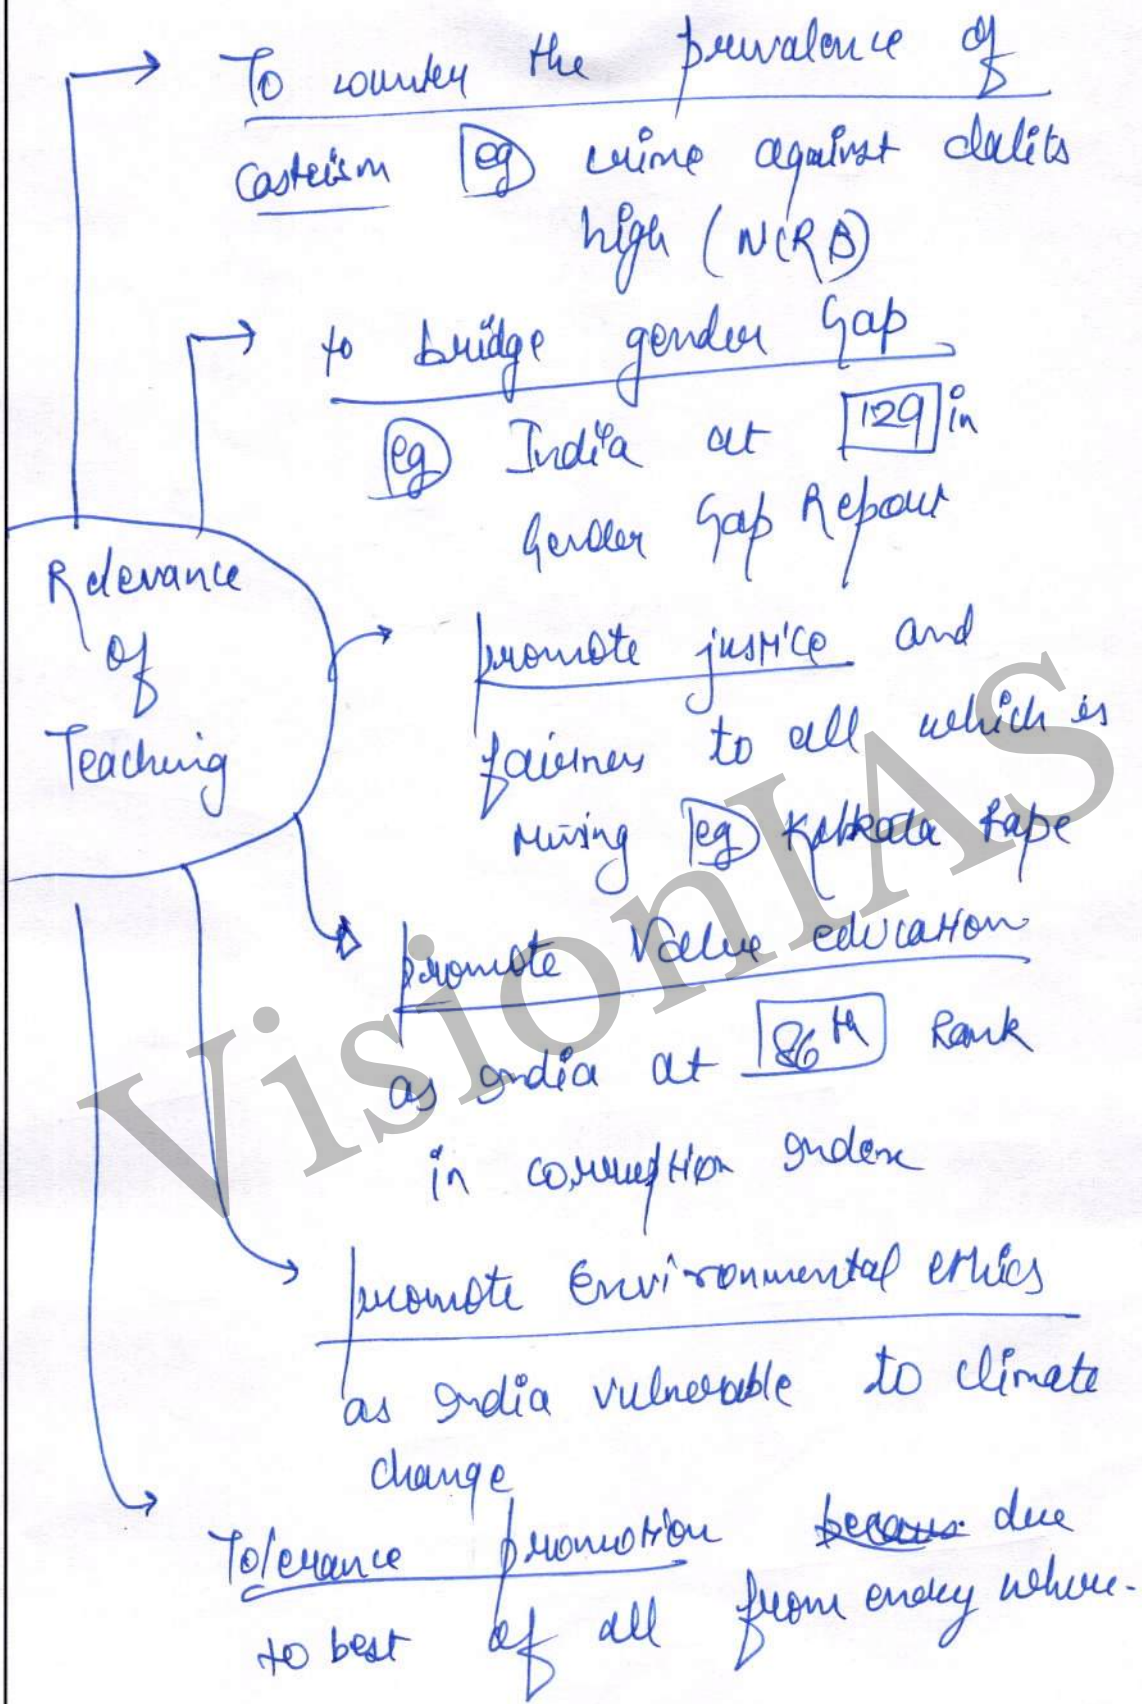 To counter the prevalence of
Casteism eg crime against dalits
high (NCRB)
to bridge gender Gap
eg India at 129 in
Gender Gap Report
Relevance
of
Teaching
promote justice and
fairness to all which is
missing eg Kolkata Rape
promote Value education
as India at 86th Rank
in corruption Index
promote Environmental ethics
as India vulnerable to climate
change
Tolerance promotion due
to best of all from every where.
VisionIAS